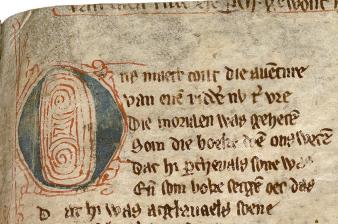 Ons maect cont die auēture
van enē ridd̄e nv t̄ vre
Die moriaen was geheten
Som die boeke doen ons weten
Dat hi ꝑchevals sone was
Eñ som boke seggen oec das
Dat hi was aglauaels sone